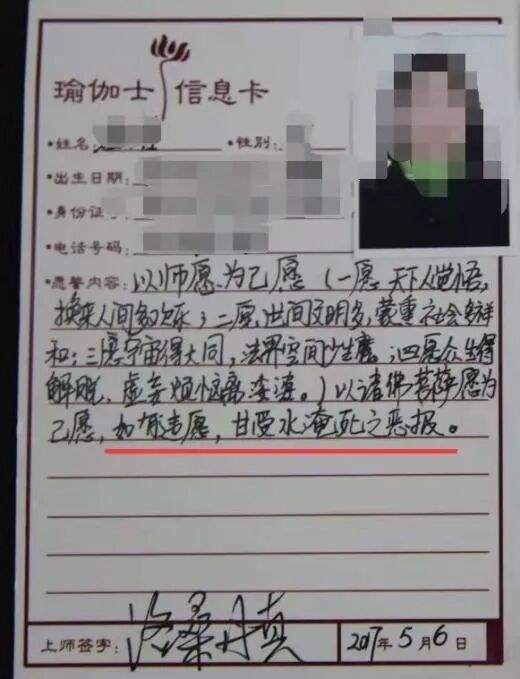 瑜伽士信息卡
•姓名:
•性别:
•出生日期:
•身份证号
•电话号码:
•愿誓内容:以师愿为己愿(一愿天下人觉悟,
换来人间多欢乐;二愿,世间文明多,蒙熏社会多祥
和;三愿宇宙得大同,法界空间少生魔;四愿众生得
解脱,虚妄烦恼离娑婆。)以诸佛菩萨愿为
己愿,如有违愿,甘受水淹死之恶报。
上师签字:洛桑丹真
2017年5月6日